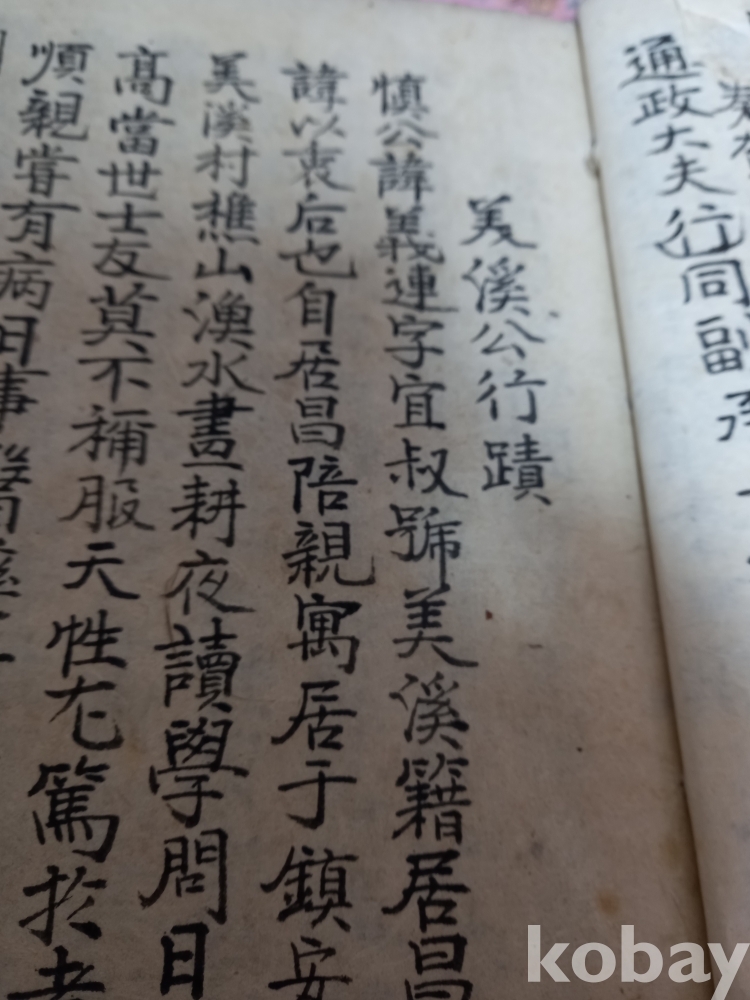 通政大夫行同副承
美溪公行蹟
愼公諱義連字宜叔號美溪籍居昌
諱以衷后也自居昌陪親寓居于鎮安
美溪村樵山漁水晝耕夜讀學問日
高當世士友莫不稱服天性尤篤於孝
順親嘗有病
kobay